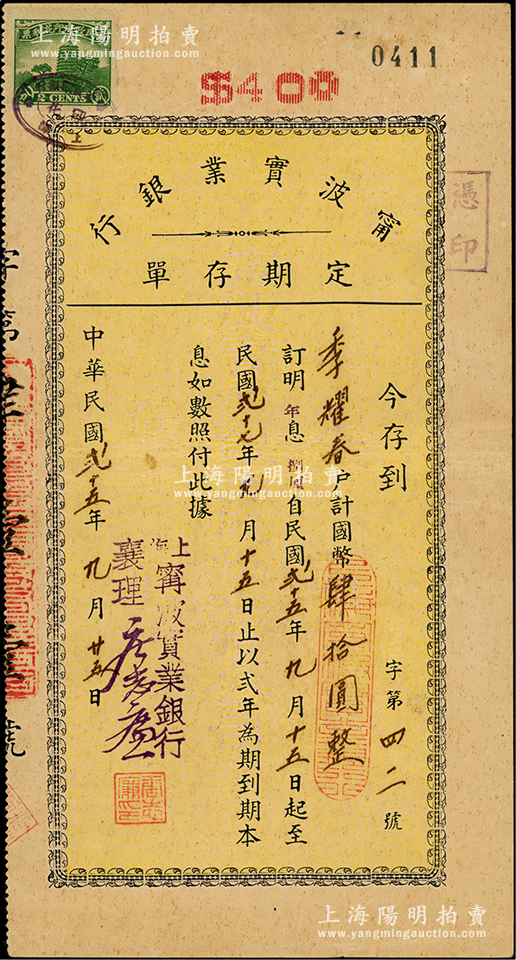 上海陽明拍賣
www.yangmingauction.com
2 CENTS
$4000
0411
憑印
甯波實業銀行
定期存單
字第四二號
今存到
季耀春戶計國幣肆拾圓整
訂明年息捌厘自民國弍十五年九月十五日起至
民國弍十七年九月十五日止以弍年為期到期本
息如數照付此據
上海甯波實業銀行
襄理
中華民國弍十五年九月廿五日
上海陽明拍賣
www.yangmingauction.com
上海陽明拍賣
www.yangmingauction.com